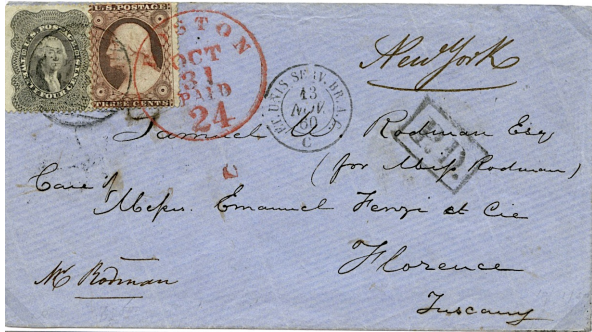 U.S. POSTAGE
THREE CENTS
BOSTON
OCT
31
PAID
24
New York
ET. UNIS SERV. BR. A.C.
13
NOV.
60
C
P.D.
Samuel W. Rodman Esq
(for Miss Rodman)
Care of
Messrs. Emanuel Fenzi et Cie
Florence
Tuscany
Mr Rodman